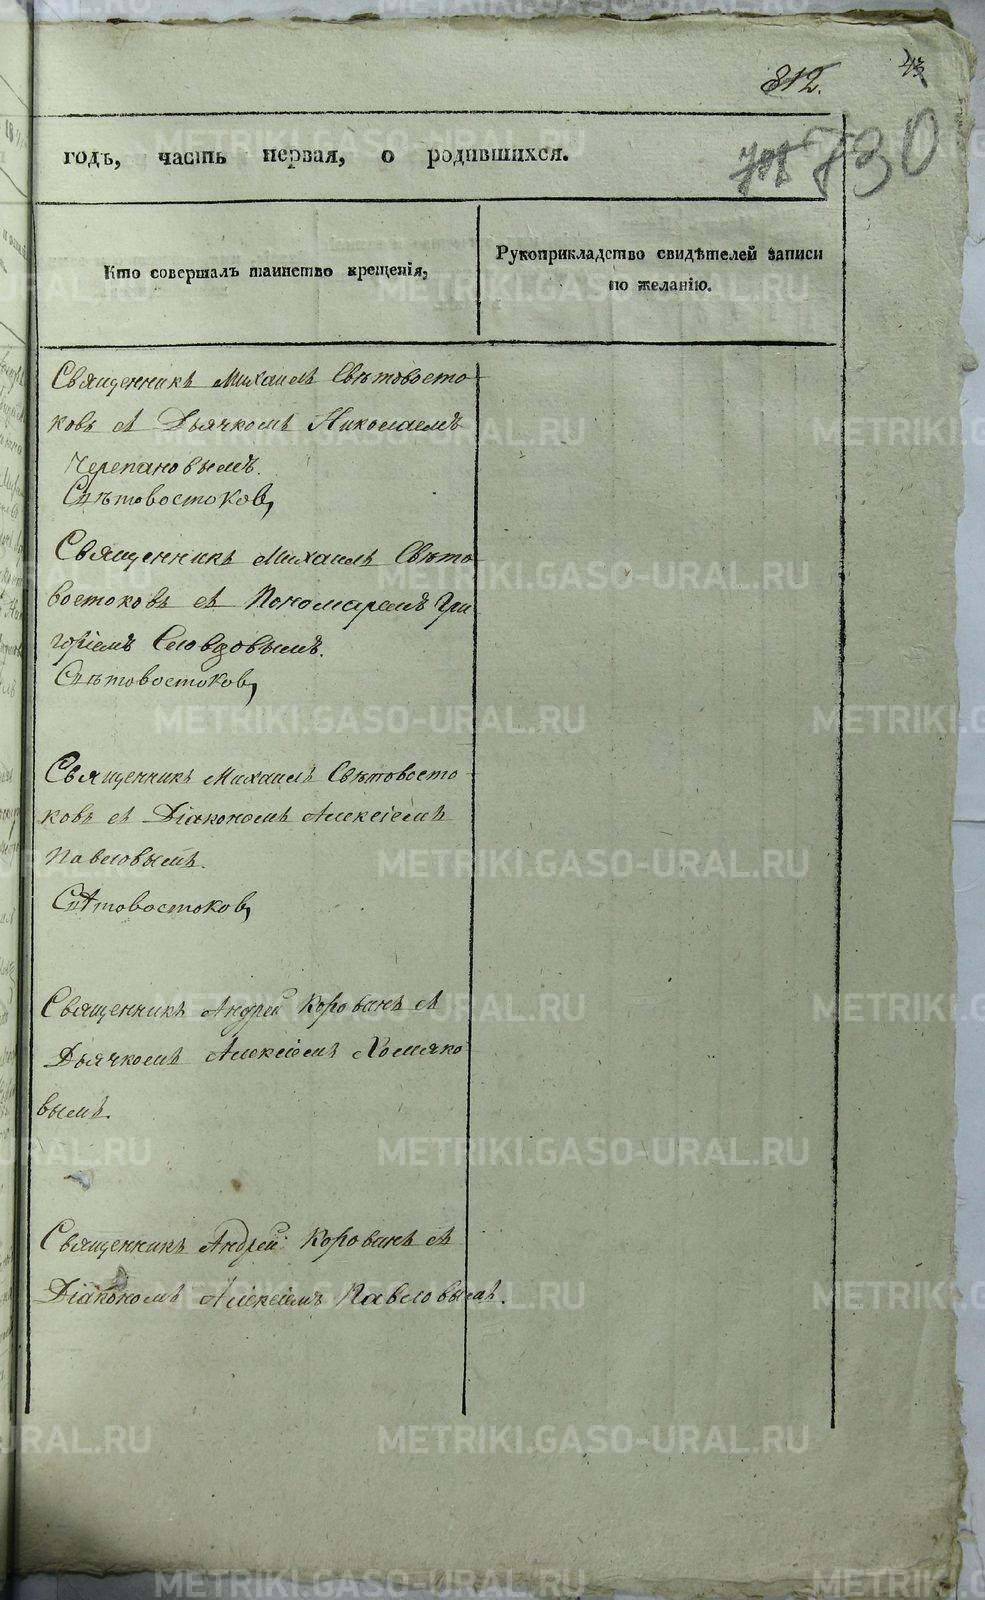 812.
43
730
годъ, часть первая, о родившихся.
Кто совершалъ таинство крещенія,
Рукоприкладство свидѣтелей записи
по желанію.
Священникъ Михаилъ Свѣтовосто-
ковъ съ Дьячкомъ Николаемъ
Черепановымъ.
Свѣтовостоковъ
Священникъ Михаилъ Свѣто
востоковъ съ Пономаремъ Гри
горіемъ Словцовымъ.
Свѣтовостоковъ
Священникъ Михаилъ Свѣтовосто-
ковъ съ Діакономъ Алексіемъ
Павловымъ.
Свѣтовостоковъ
Священникъ Андрей Корованъ съ
Дьячкомъ Алексіемъ Хомяко
вымъ.
Священникъ Андрей Корованъ съ
Діакономъ Алексіемъ Павловымъ.
METRIKI.GASO-URAL.RU